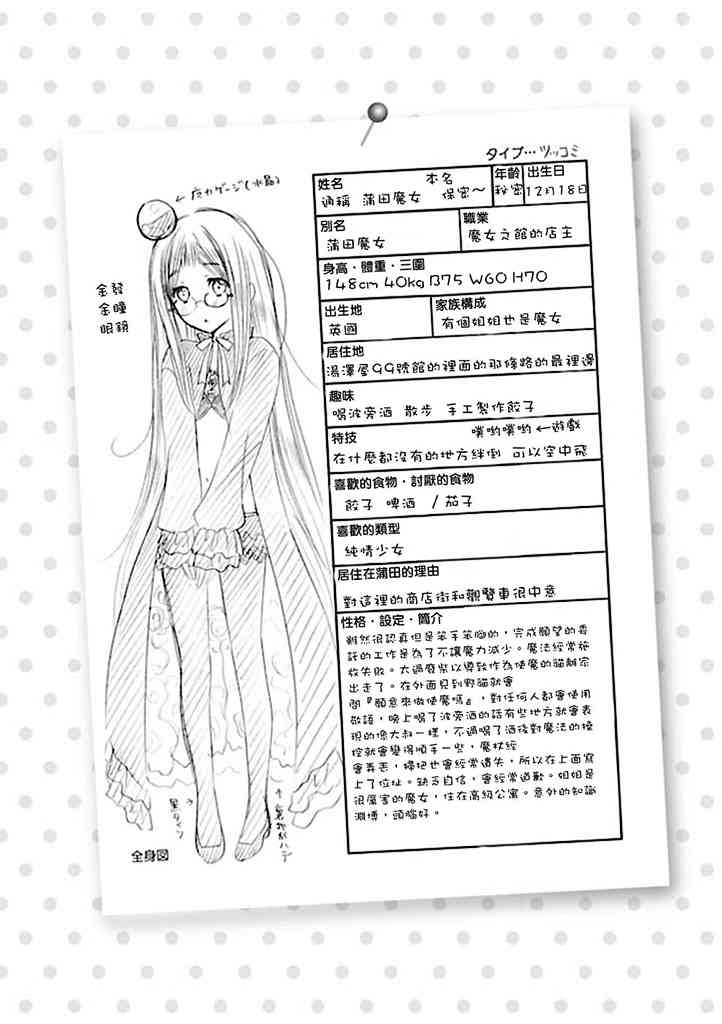 タイプ…ツッコミ
姓名 本名
通稱 蒲田魔女 保密～
年齡
秘密
出生日
12月18日
別名
蒲田魔女
職業
魔女之館的店主
身高・體重・三圍
148cm 40kg B75 W60 H70
出生地
英國
家族構成
有個姐姐也是魔女
居住地
湯澤屋99號館的裡面的那條路的最裡邊
趣味
喝波旁酒 散步 手工製作餃子
特技 噗喲噗喲←遊戲
在什麼都沒有的地方絆倒 可以空中飛
喜歡的食物・討厭的食物
餃子 啤酒 /茄子
喜歡的類型
純情少女
居住在蒲田的理由
對這裡的商店街和觀覽車很中意
性格・設定・簡介
雖然很認真但是笨手笨腳的，完成願望的委
託的工作是為了不讓魔力減少。魔法經常施
放失敗。太過廢柴以導致作為使魔的貓離家
出走了。在外面見到野貓就會
問『願意來做使魔嗎』，對任何人都會使用
敬語，晚上喝了波旁酒的話有些地方就會表
現的像大叔一樣，不過喝了酒後對魔法的操
控就會變得順手一些，魔杖經
會弄丟，掃把也會經常遺失，所以在上面寫
上了位址。缺乏自信，會經常道歉。姐姐是
很厲害的魔女，住在高級公寓。意外的知識
淵博，頭腦好。
←魔力ゲージ(水晶)
金發
金瞳
眼鏡
黒タイツ
↑
裏地がハデ
全身図